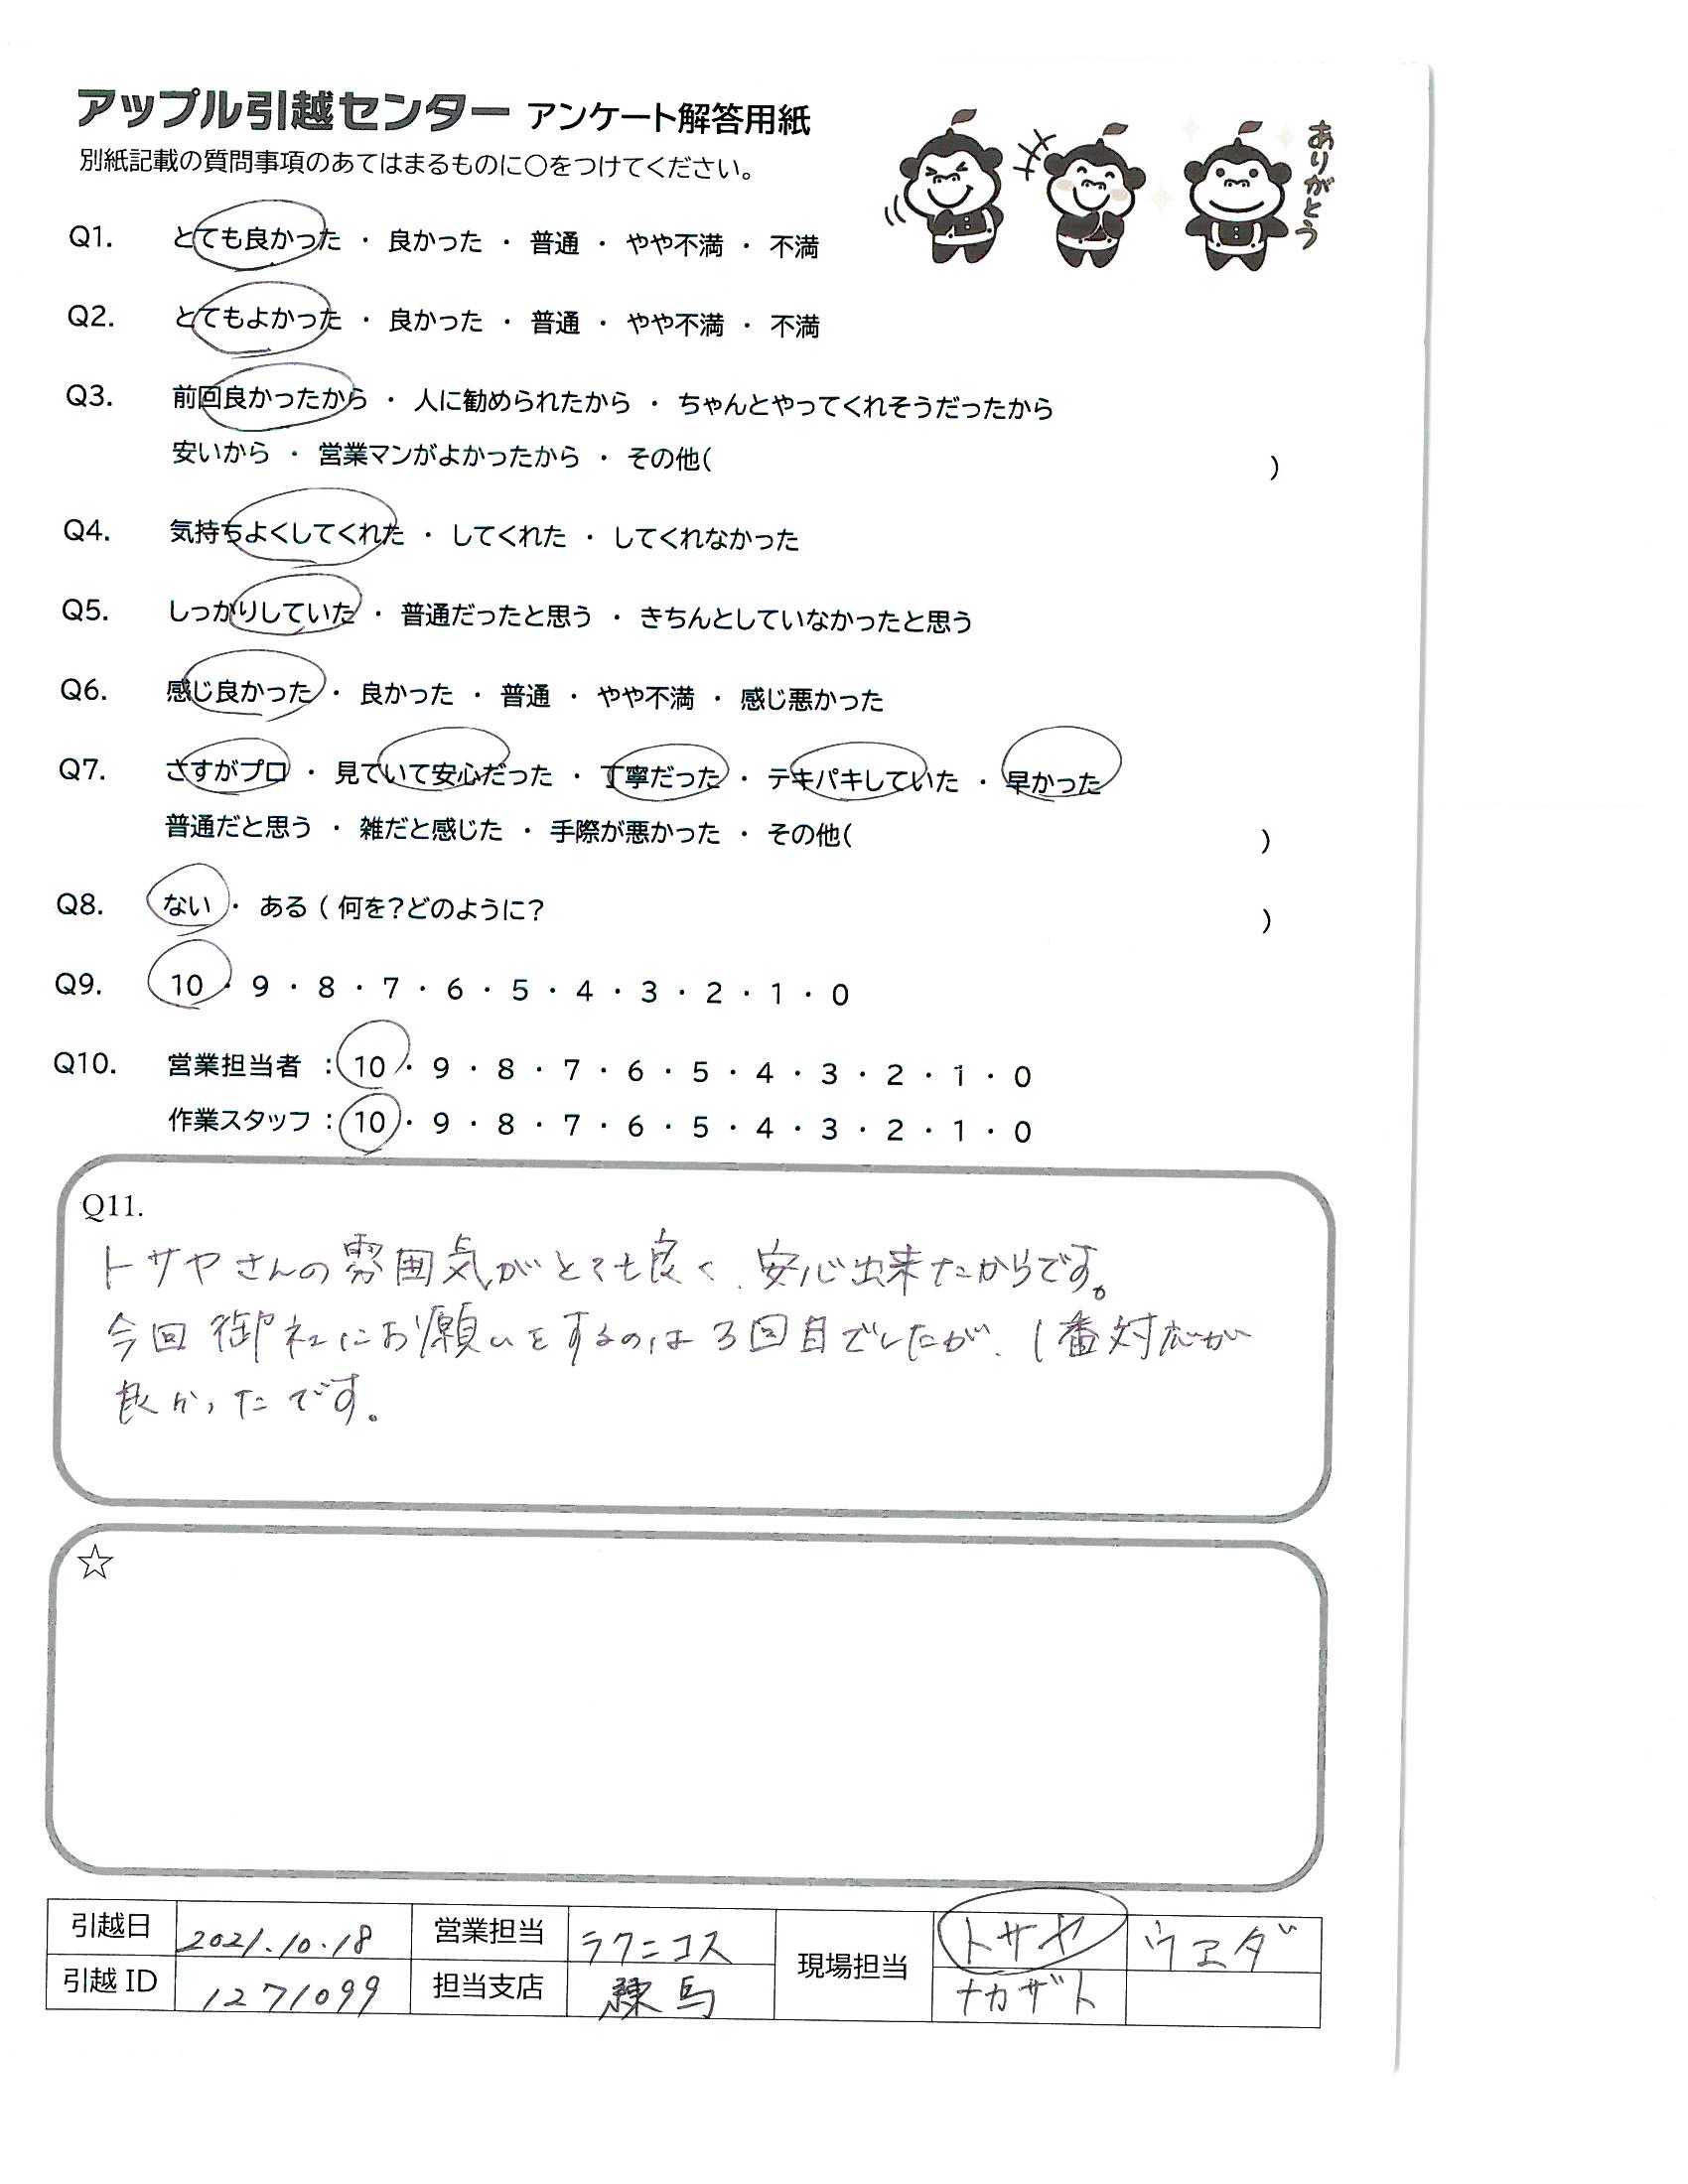 アップル引越センター アンケート解答用紙
別紙記載の質問事項のあてはまるものに○をつけてください。
ありがとう
Q1. とても良かった ・ 良かった ・ 普通 ・ やや不満 ・ 不満
Q2. とてもよかった ・ 良かった ・ 普通 ・ やや不満 ・ 不満
Q3. 前回良かったから ・ 人に勧められたから ・ ちゃんとやってくれそうだったから
安いから ・ 営業マンがよかったから ・ その他( )
Q4. 気持ちよくしてくれた ・ してくれた ・ してくれなかった
Q5. しっかりしていた ・ 普通だったと思う ・ きちんとしていなかったと思う
Q6. 感じ良かった ・ 良かった ・ 普通 ・ やや不満 ・ 感じ悪かった
Q7. さすがプロ ・ 見ていて安心だった ・ 丁寧だった ・ テキパキしていた ・ 早かった
普通だと思う ・ 雑だと感じた ・ 手際が悪かった ・ その他( )
Q8. ない ・ ある ( 何を?どのように? )
Q9. 10 ・ 9 ・ 8 ・ 7 ・ 6 ・ 5 ・ 4 ・ 3 ・ 2 ・ 1 ・ 0
Q10. 営業担当者 : 10 ・ 9 ・ 8 ・ 7 ・ 6 ・ 5 ・ 4 ・ 3 ・ 2 ・ 1 ・ 0
作業スタッフ : 10 ・ 9 ・ 8 ・ 7 ・ 6 ・ 5 ・ 4 ・ 3 ・ 2 ・ 1 ・ 0
Q11.
トサヤさんの雰囲気がとても良く、安心出来たからです。
今回御社にお願いをするのは3回目でしたが、1番対応が
良かったです。
☆
引越日 2021.10.18 営業担当 ラクニコス 現場担当 トサヤ ウエダ
引越 ID 1271099 担当支店 練馬 ナカザト